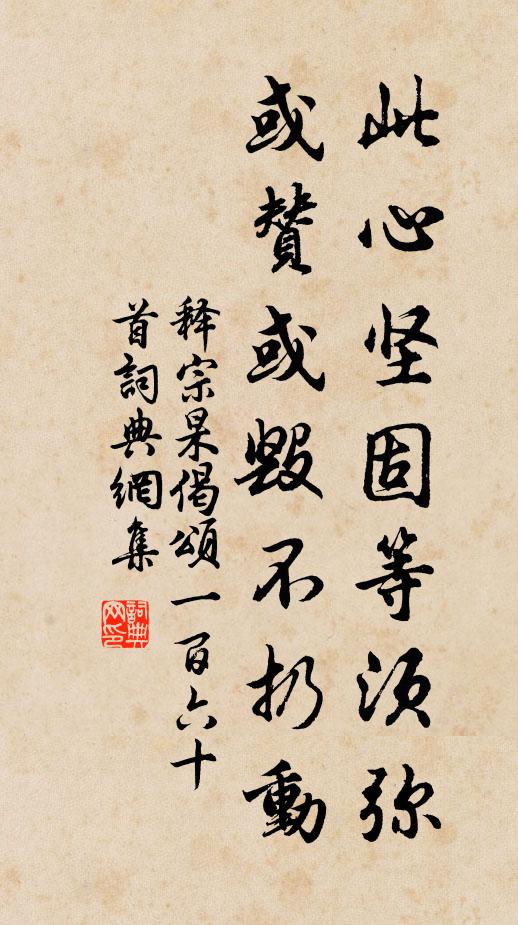 此心坚固等须弥
或赞或毁不扔動
释宗杲偈頌一百六十
首詞典網集
詞典网印